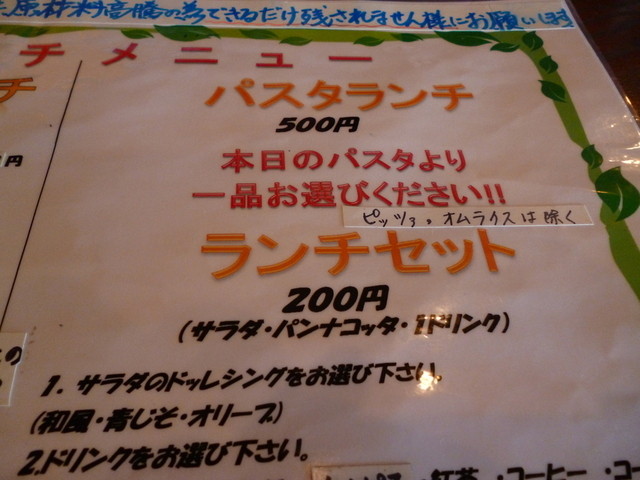 原材料高騰の為できるだけ残されません様にお願い
チメニュー
チ
パスタランチ
500円
円
本日のパスタより
一品お選びください!!
ピッツァ。オムライスは除く
ランチセット
200円
(サラダ・パンナコッタ・1ドリンク)
の
1. サラダのドレッシングをお選び下さい。
(和風・青じそ・オリーブ)
2.ドリンクをお選び下さい。
・紅茶・コーヒー・コー